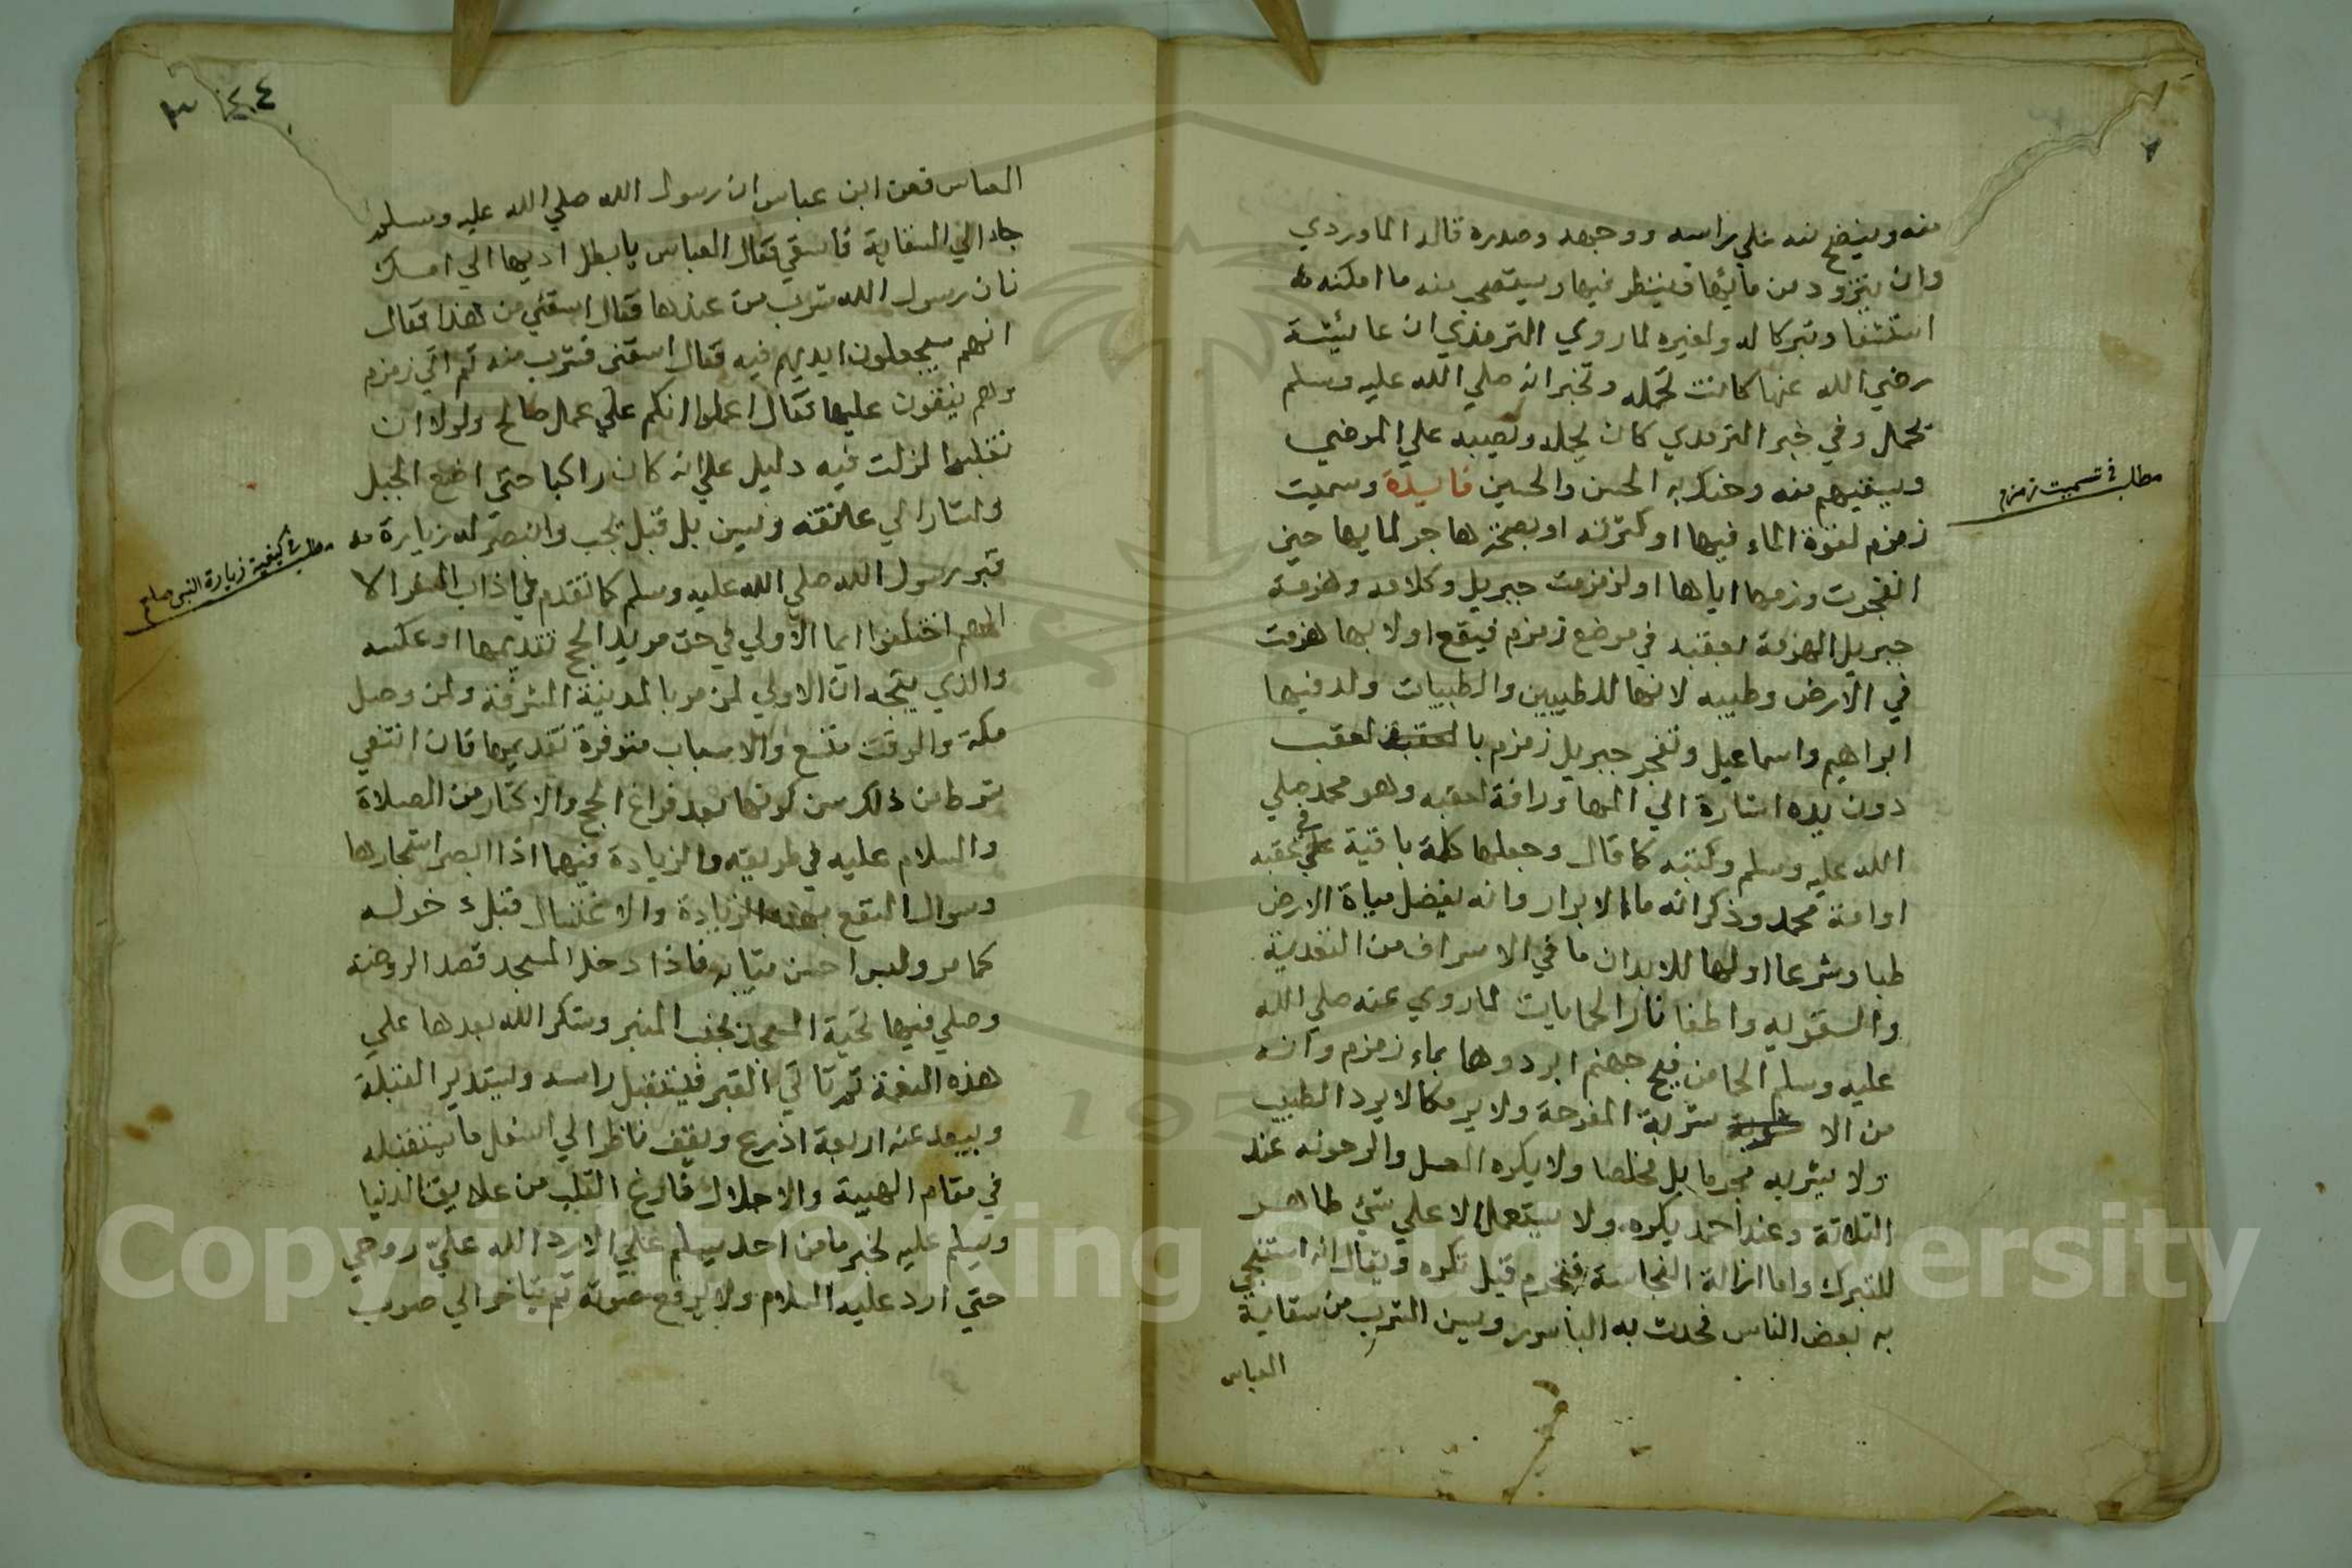 منه وينضح منه علي راسه ووجهه وصدره قال الماوردي
وان يتزود من مائها فينظر فيها ويستصحب منه ما امكنه
استشفا وتبركا له ولغيره لما روي الترمذي ان عائيشة
رضي الله عنها كانت تحمله وتخبر انه صلي الله عليه وسلم
تحمل وفي خبر الترمدي كان يحمله ويصبه علي المرضي
ويسقيهم منه وحنك به الحسن والحسين فايدة وسميت
زمزم لقوة الماء فيها او كثرته او بضمة هاجر لمايها حين
انفجرت وزمها اياها او لزمزمت جبريل وكلامه وهزمة
جبريل الهزمة بعقبه في موضع زمزم فيقع اولا بها هزمت
في الارض وطيبه لانها للطيبين والطيبات ولد فيها
ابراهيم واسماعيل وتفجر جبريل زمزم بالعقبه لعقب
دون يده اشارة الي انها وراثة لعقبه وهو محمد صلي
الله عليه وسلم وكتبه كما قال وجعلها كلمة باقية علي في عقبه
او امة محمد وذكر انه ماء الابرار وانه يفضل مياة الارض
طبا وشرعا اولها للابدان ما في الاسراف من التغدية
والتقويه واطفا نار الحمايات لما روي عنه صلي الله
عليه وسلم الحما من فيح جهنم ابردوها بماء زمزم وانه
من الا شربة المفرحة ولا يرد كما لا يرد الطيب
ولا يشربه مجرما بل مخلصا ولا يكره الغسل والوضوء عند
الثلاثة وعند احمد يكره ولا يستعمل الا علي شئ طاهر
للتبرك واما ازالة النجاسة فتحرم قيل تكره ويقال انه استنجي
به بعض الناس فحدث به الباسور ويسن الشرب من سقاية
العباس
مطلب في تسميت زمزم
٤
العباس فعن ابن عباس ان رسول الله صلي الله عليه وسلم
جاء الي السقاية فاسقي فقال العباس يا بطل اديها الي امك
فات رسول الله بشرب من عندها فقال اسقني من هذا فقال
انهم يجعلون ايديهم فيه فقال اسقني فشرب منه ثم اتي زمزم
وهم يسقون عليها فقال اعملوا انكم علي عمل صالح ولولا ان
تغلبوا لنزلت فيه دليل علي انه كان راكبا حتي اضع الحبل
واشار الي عاتقه ويسن بل قيل تجب وانتصر له زيارة
قبر رسول الله صلي الله عليه وسلم كما تقدم في اداب السفر الا
انهم اختلفوا ايما الاولي في حق مريد الحج تقديمها او عكسه
والذي يتجه ان الاولي لمن مر بالمدينة المشرفة ولمن وصل
مكة والوقت متسع والاسباب متوفرة تقديمها فان انتفي
شرط من ذلك سن كونها بعد فراغ الحج والاكثار من الصلاة
والسلام عليه في طريقه والزيادة فيهما اذا ابصر اشجارها
وسوال النفع بهذه الزيارة والاغتسال قبل دخوله
كما مر ولبس احسن ثيابه فاذا دخل المسجد قصد الروضة
وصلي فيها تحية المسجد بجنب المنبر وشكر الله بعدها علي
هذه النعمة ثم تاتي القبر فيستقبل راسه وليستدبر القبلة
ويبعد عنه اربعة اذرع ويقف ناظرا الي اسفل ما يستقبله
في مقام الهيبة والاجلال فارغ القلب من علايق الدنيا
ويسلم عليه لخبر ما من احد يسلم علي الا رد الله عليّ روحي
حتي ارد عليه السلام ولا يرفع صوته ثم يتاخر الي صوب
مطلب في كيفية زيارة النبي صلعم